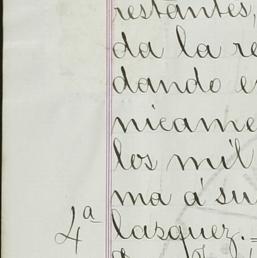 restantes,
da la re
dando e
nicame
los mil
ma á su
4ª lasquez.=